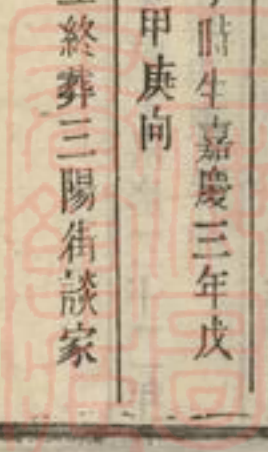 時生嘉慶三年戊
甲庚向
終葬三陽街談家